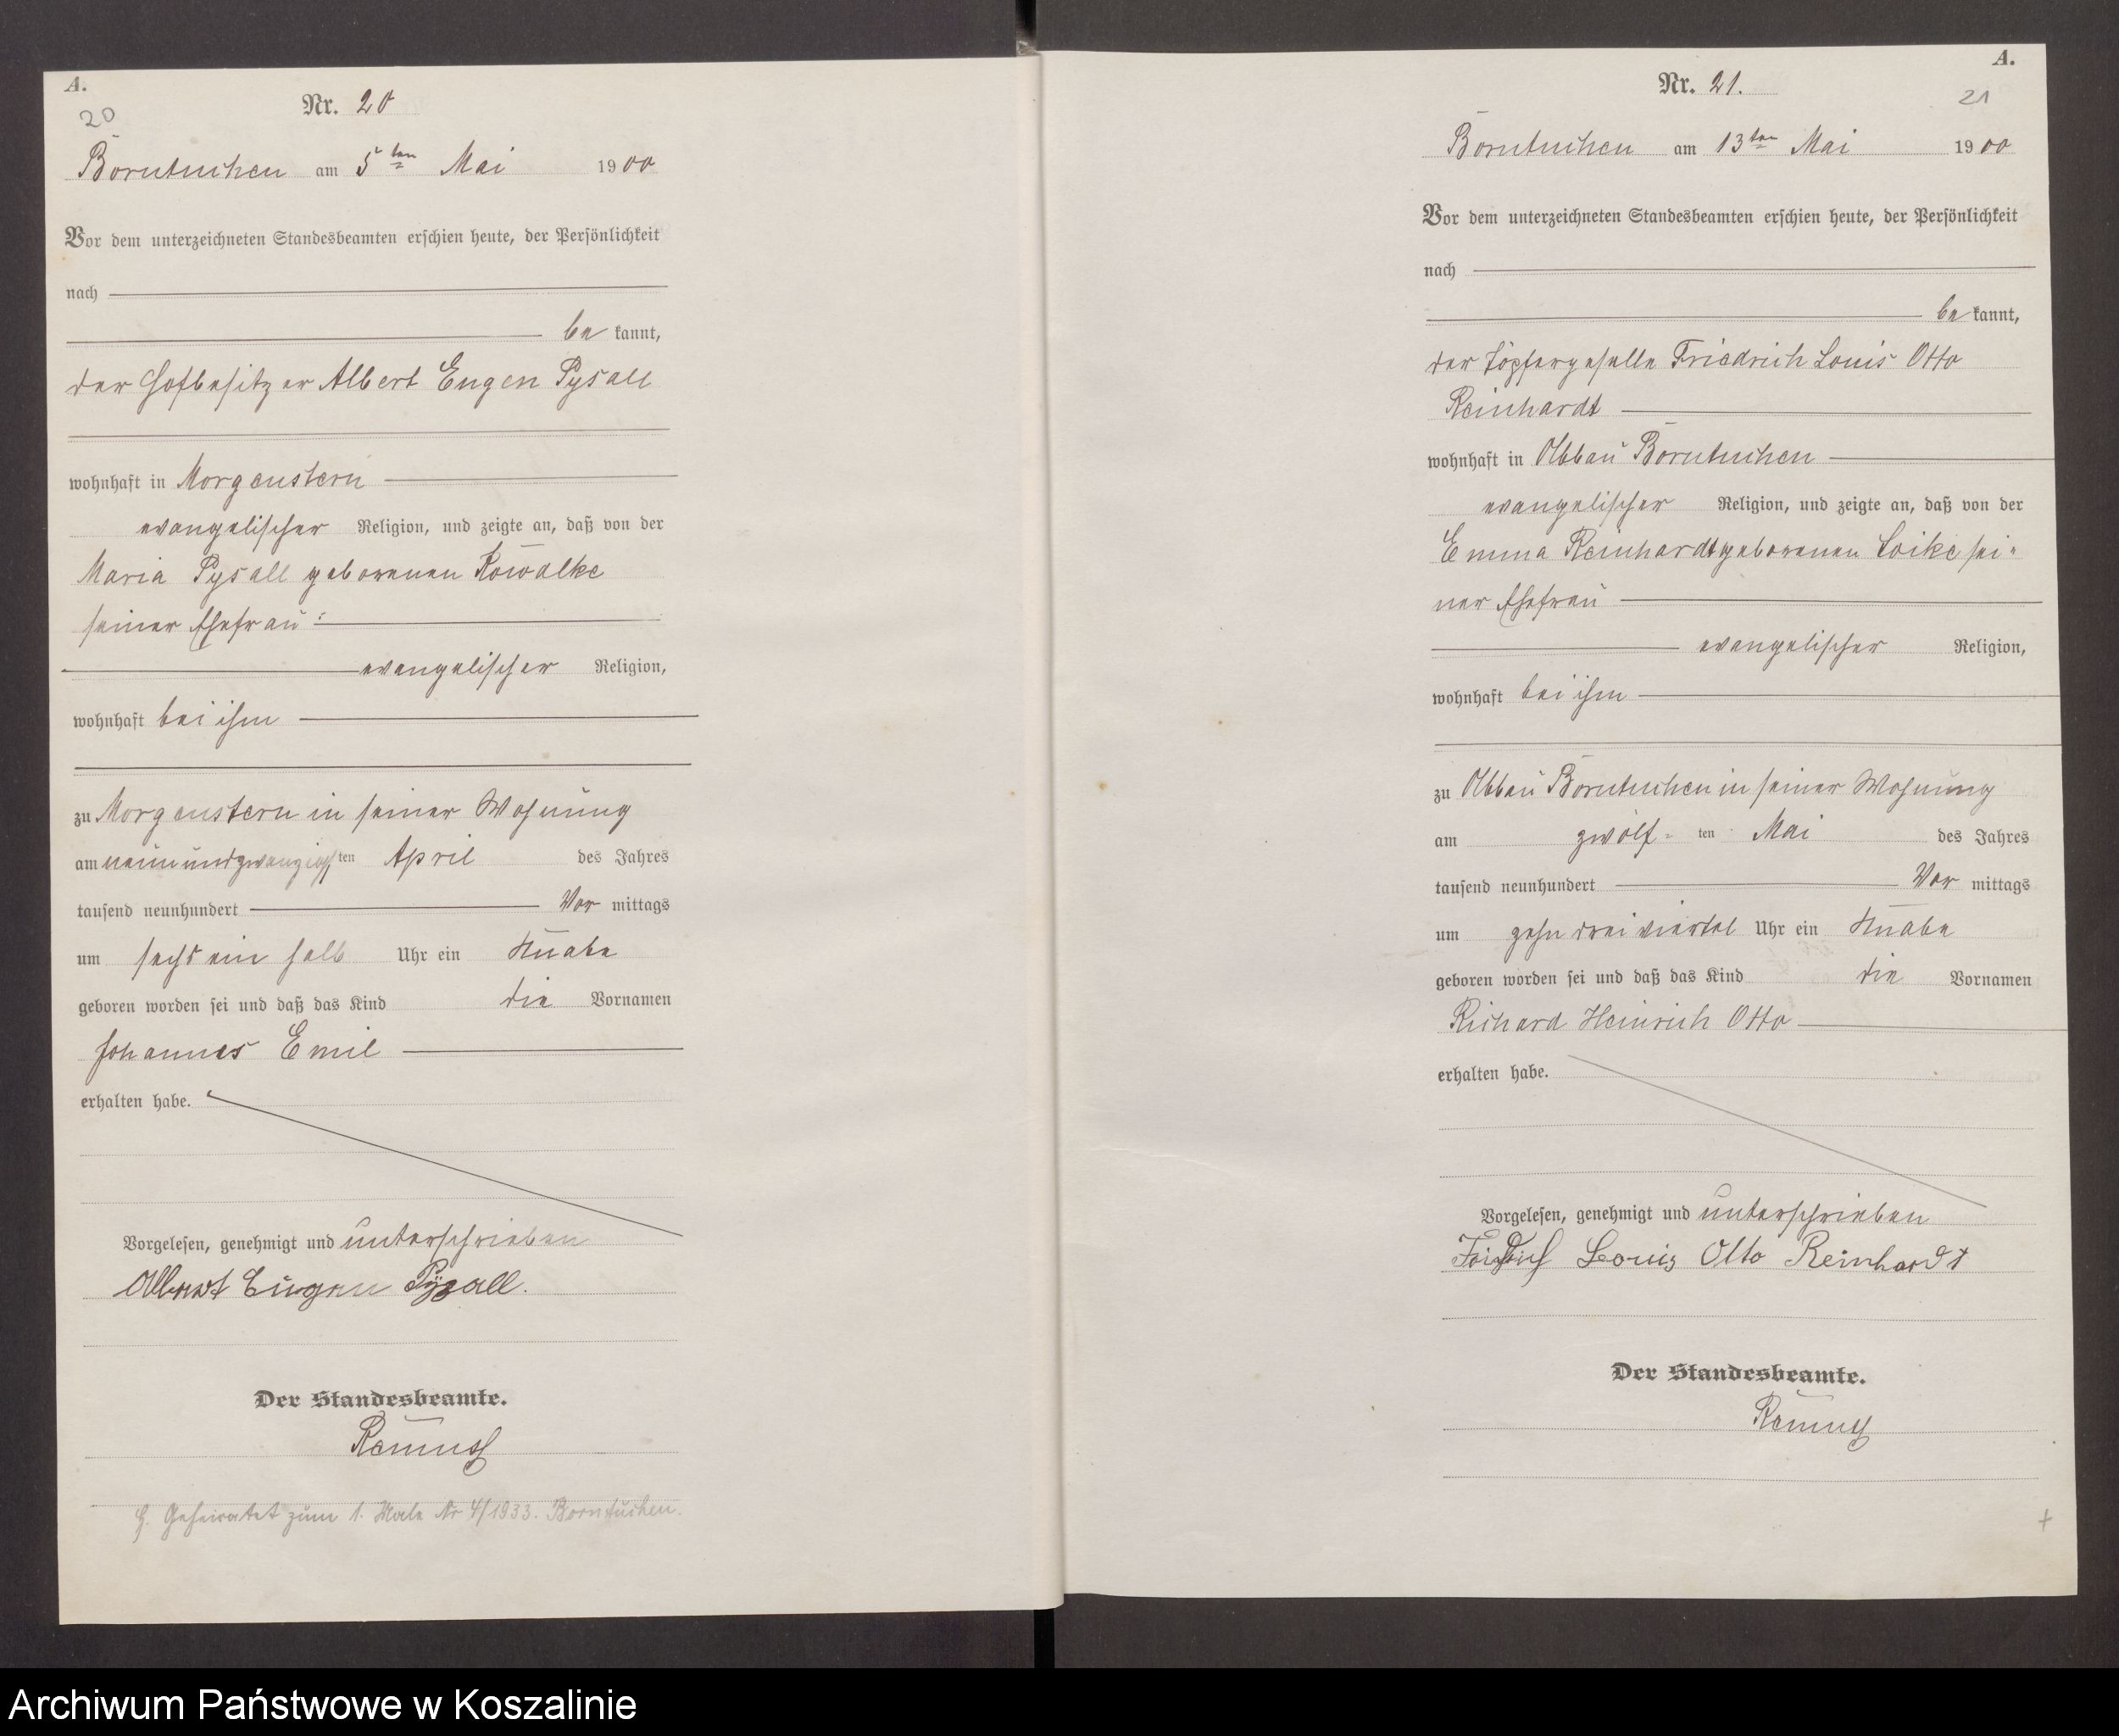 A.
20
Nr. 20
Borntuchen am 5ten Mai 1900
Vor dem unterzeichneten Standesbeamten erschien heute, der Persönlichkeit
nach
be kannt,
der Hofbesitzer Albert Eugen Pysall
wohnhaft in Morgenstern
evangelischer Religion, und zeigte an, daß von der
Maria Pysall geborenen Kowalke
seiner Ehefrau
evangelischer Religion,
wohnhaft bei ihm
zu Morgenstern in seiner Wohnung
am neunundzwanzigsten April des Jahres
tausend neunhundert Vor mittags
um sechs ein halb Uhr ein Knabe
geboren worden sei und daß das Kind die Vornamen
Johannes Emil
erhalten habe.
Vorgelesen, genehmigt und unterschrieben
Albert Eugen Pysall.
Der Standesbeamte.
Remus
Geheiratet zum 1. Male Nr 4/1933. Borntuchen.
A.
21
Nr. 21.
Borntuchen am 13ten Mai 1900
Vor dem unterzeichneten Standesbeamten erschien heute, der Persönlichkeit
nach
be kannt,
der Töpfergeselle Friedrich Louis Otto
Reinhardt
wohnhaft in Abbau Borntuchen
evangelischer Religion, und zeigte an, daß von der
Emma Reinhardt geborenen Loike sei-
ner Ehefrau
evangelischer Religion,
wohnhaft bei ihm
zu Abbau Borntuchen in seiner Wohnung
am zwölf- ten Mai des Jahres
tausend neunhundert Vor mittags
um zehn drei viertel Uhr ein Knabe
geboren worden sei und daß das Kind die Vornamen
Richard Heinrich Otto
erhalten habe.
Vorgelesen, genehmigt und unterschrieben
Friedrich Louis Otto Reinhardt
Der Standesbeamte.
Remus
Archiwum Państwowe w Koszalinie